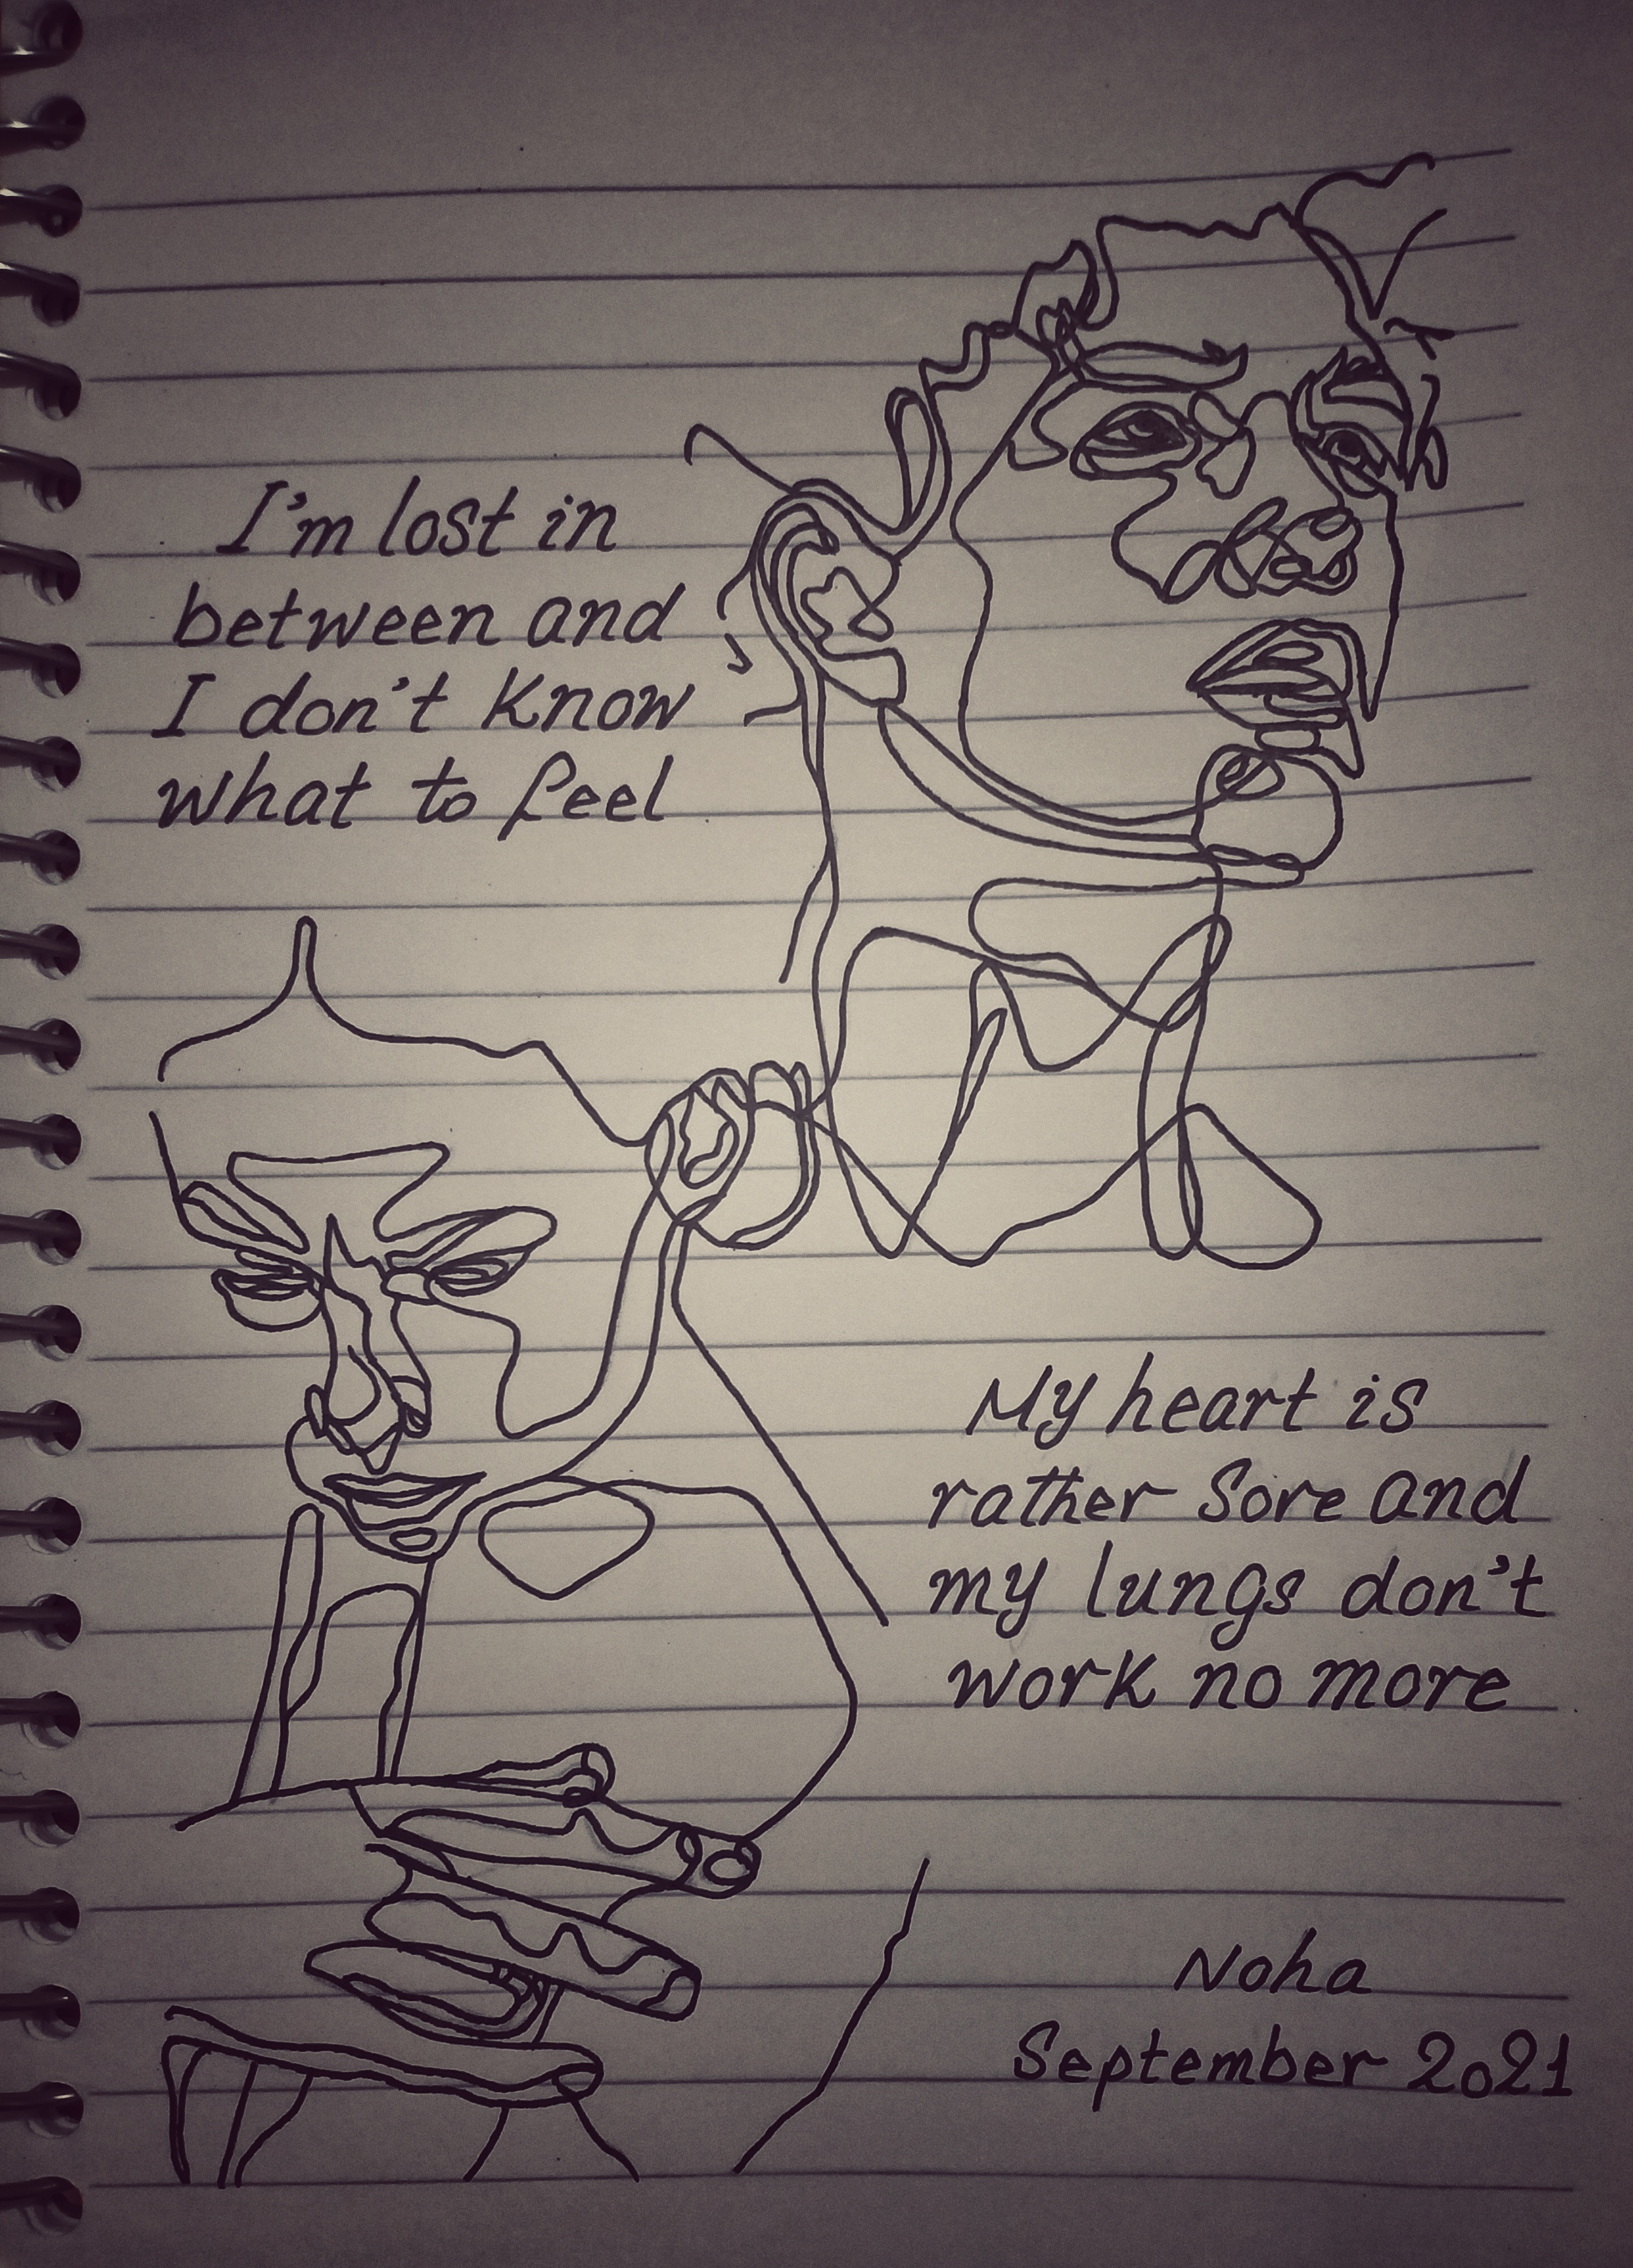 I'm lost in
between and
I don't know
what to feel
My heart is
rather sore and
my lungs don't
work no more
Noha
September 2021